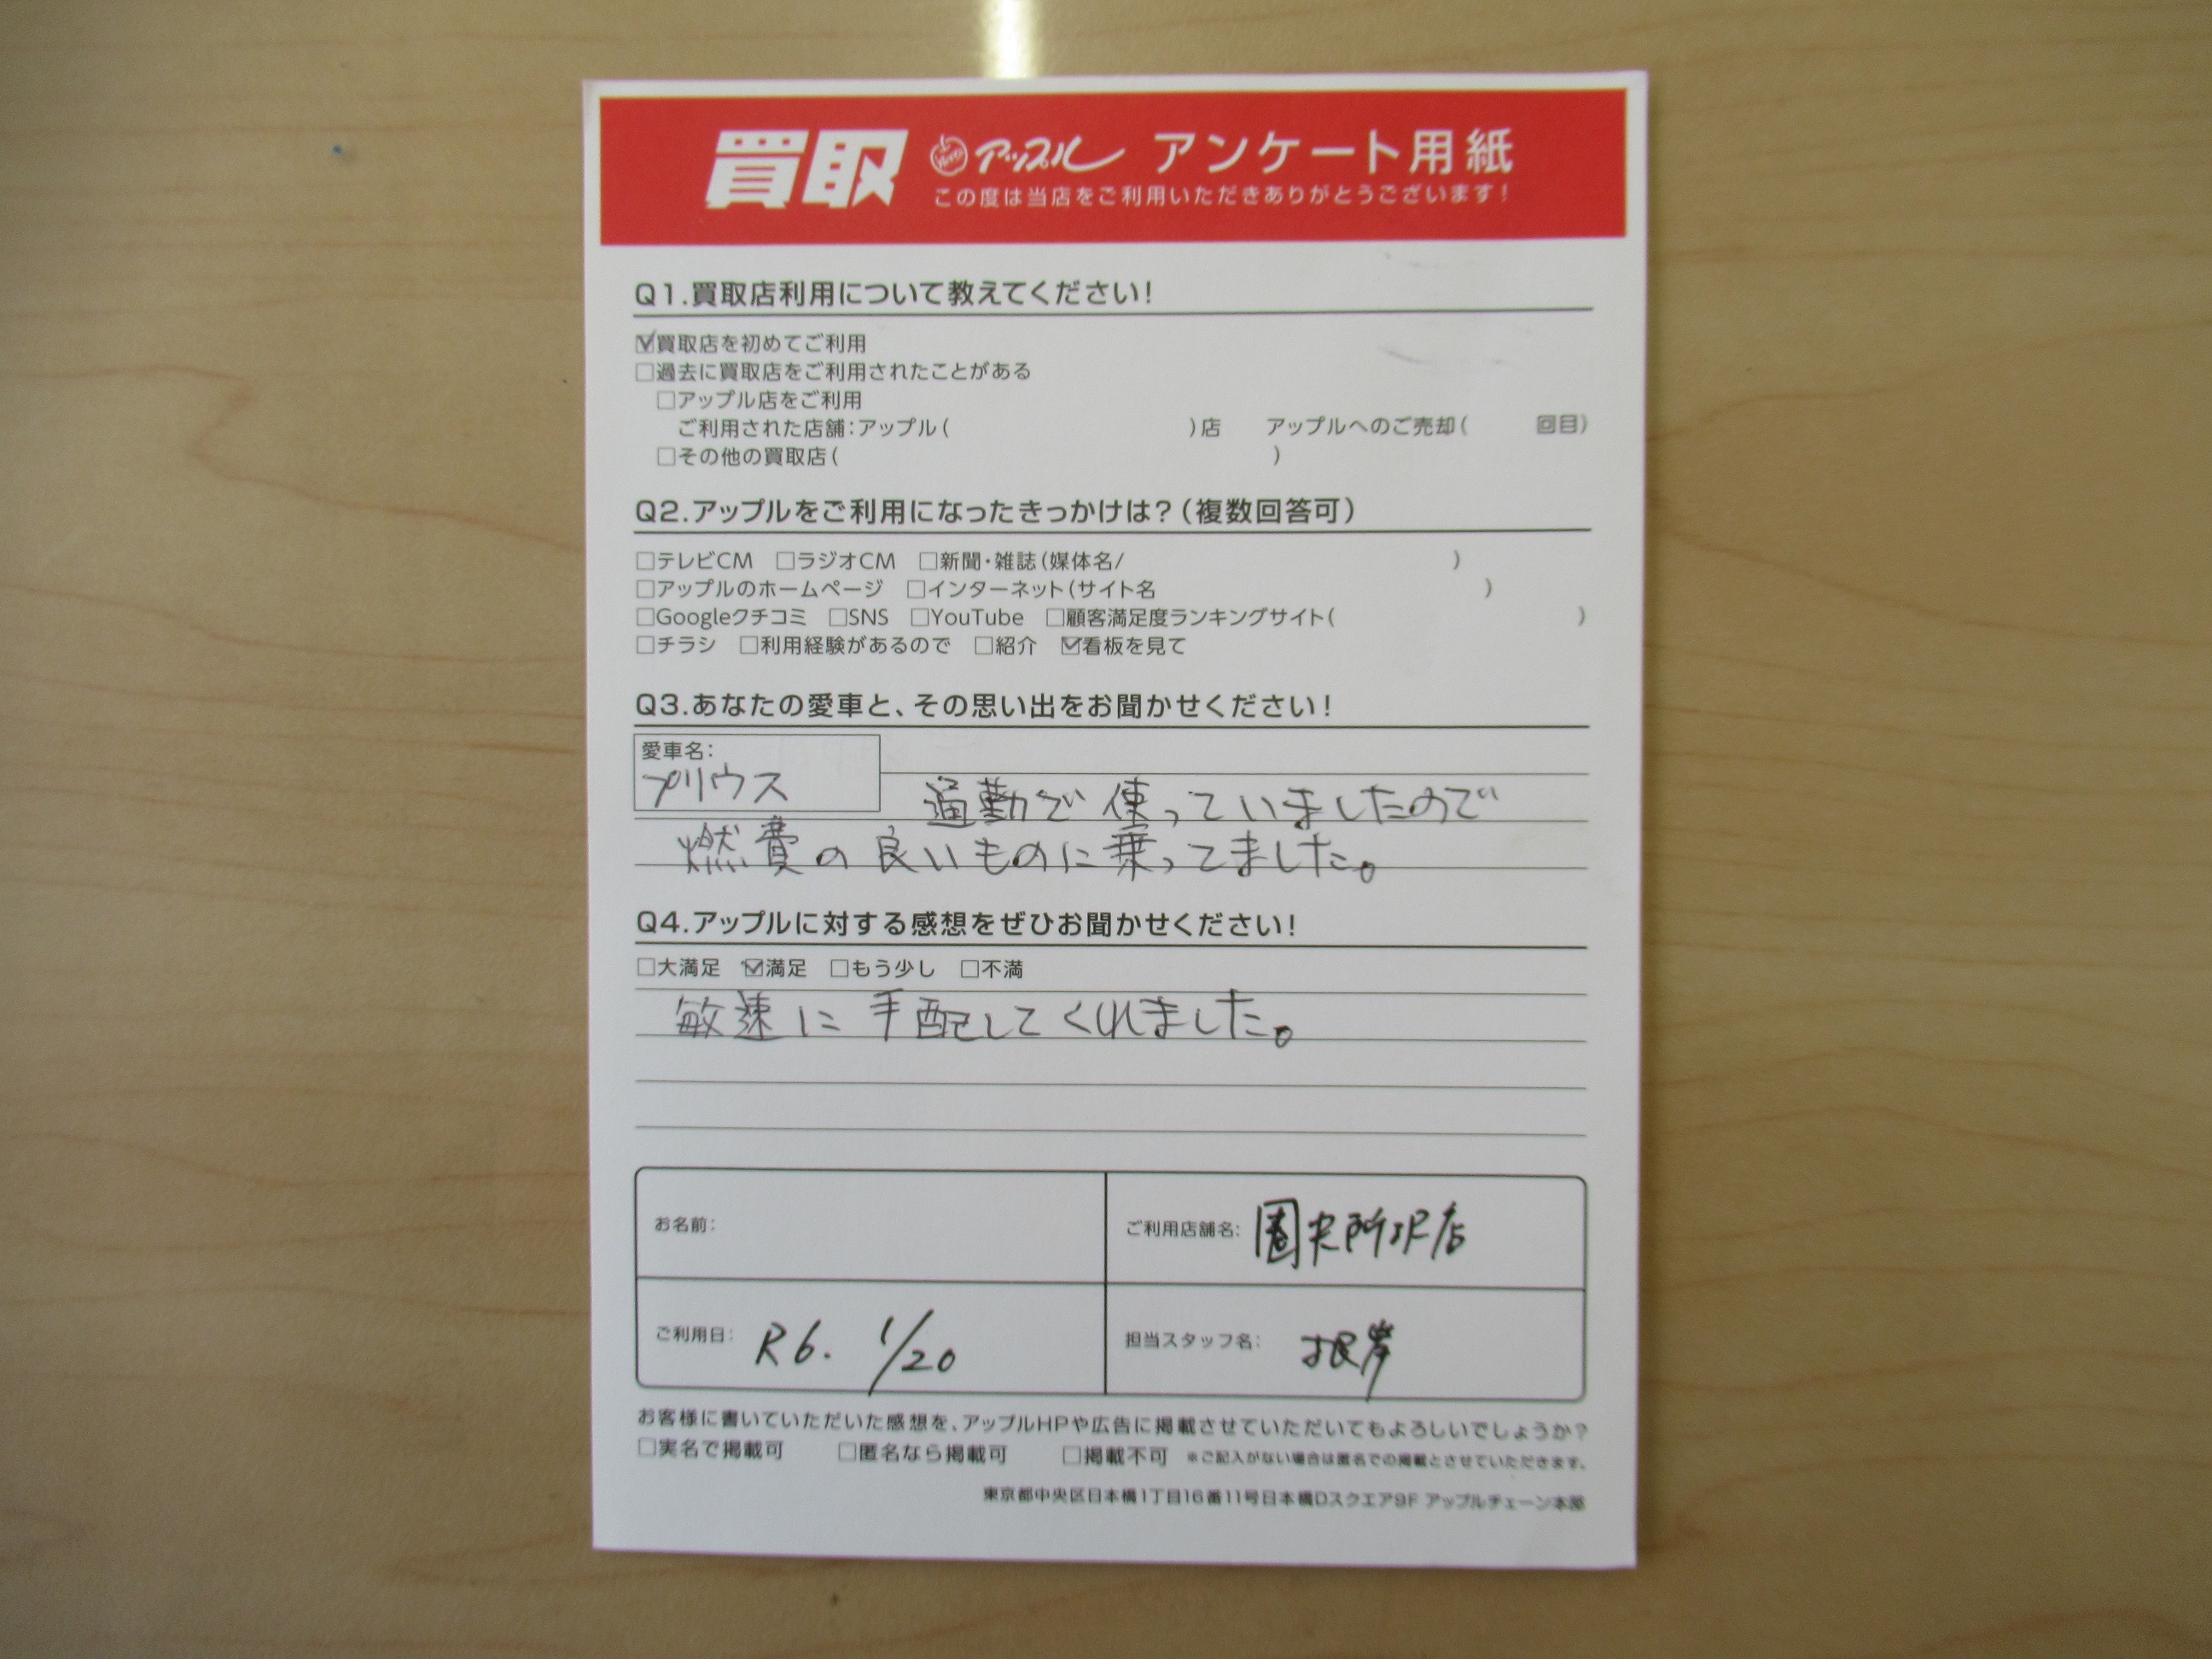 買取 アップル アンケート用紙
この度は当店をご利用いただきありがとうございます!
Q1.買取店利用について教えてください!
☑買取店を初めてご利用
□過去に買取店をご利用されたことがある
□アップル店をご利用
ご利用された店舗:アップル( )店 アップルへのご売却( 回目)
□その他の買取店( )
Q2.アップルをご利用になったきっかけは?(複数回答可)
□テレビCM □ラジオCM □新聞・雑誌(媒体名/ )
□アップルのホームページ □インターネット(サイト名 )
□Googleクチコミ □SNS □YouTube □顧客満足度ランキングサイト( )
□チラシ □利用経験があるので □紹介 ☑看板を見て
Q3.あなたの愛車と、その思い出をお聞かせください!
愛車名:
プリウス
通勤で使っていましたので
燃費の良いものに乗ってました。
Q4.アップルに対する感想をぜひお聞かせください!
□大満足 ☑満足 □もう少し □不満
敏速に手配してくれました。
お名前:
ご利用店舗名: 圏央所沢店
ご利用日: R6. 1/20
担当スタッフ名: 根岸
お客様に書いていただいた感想を、アップルHPや広告に掲載させていただいてもよろしいでしょうか?
□実名で掲載可 □匿名なら掲載可 □掲載不可 ※ご記入がない場合は匿名での掲載とさせていただきます。
東京都中央区日本橋1丁目16番11号日本橋Dスクエア9F アップルチェーン本部